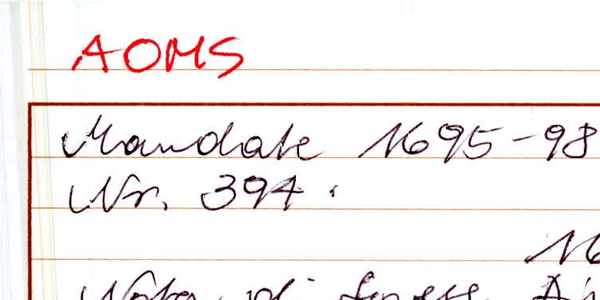 AOMS
Mandate 1695-98
Nr. 394.
16
di